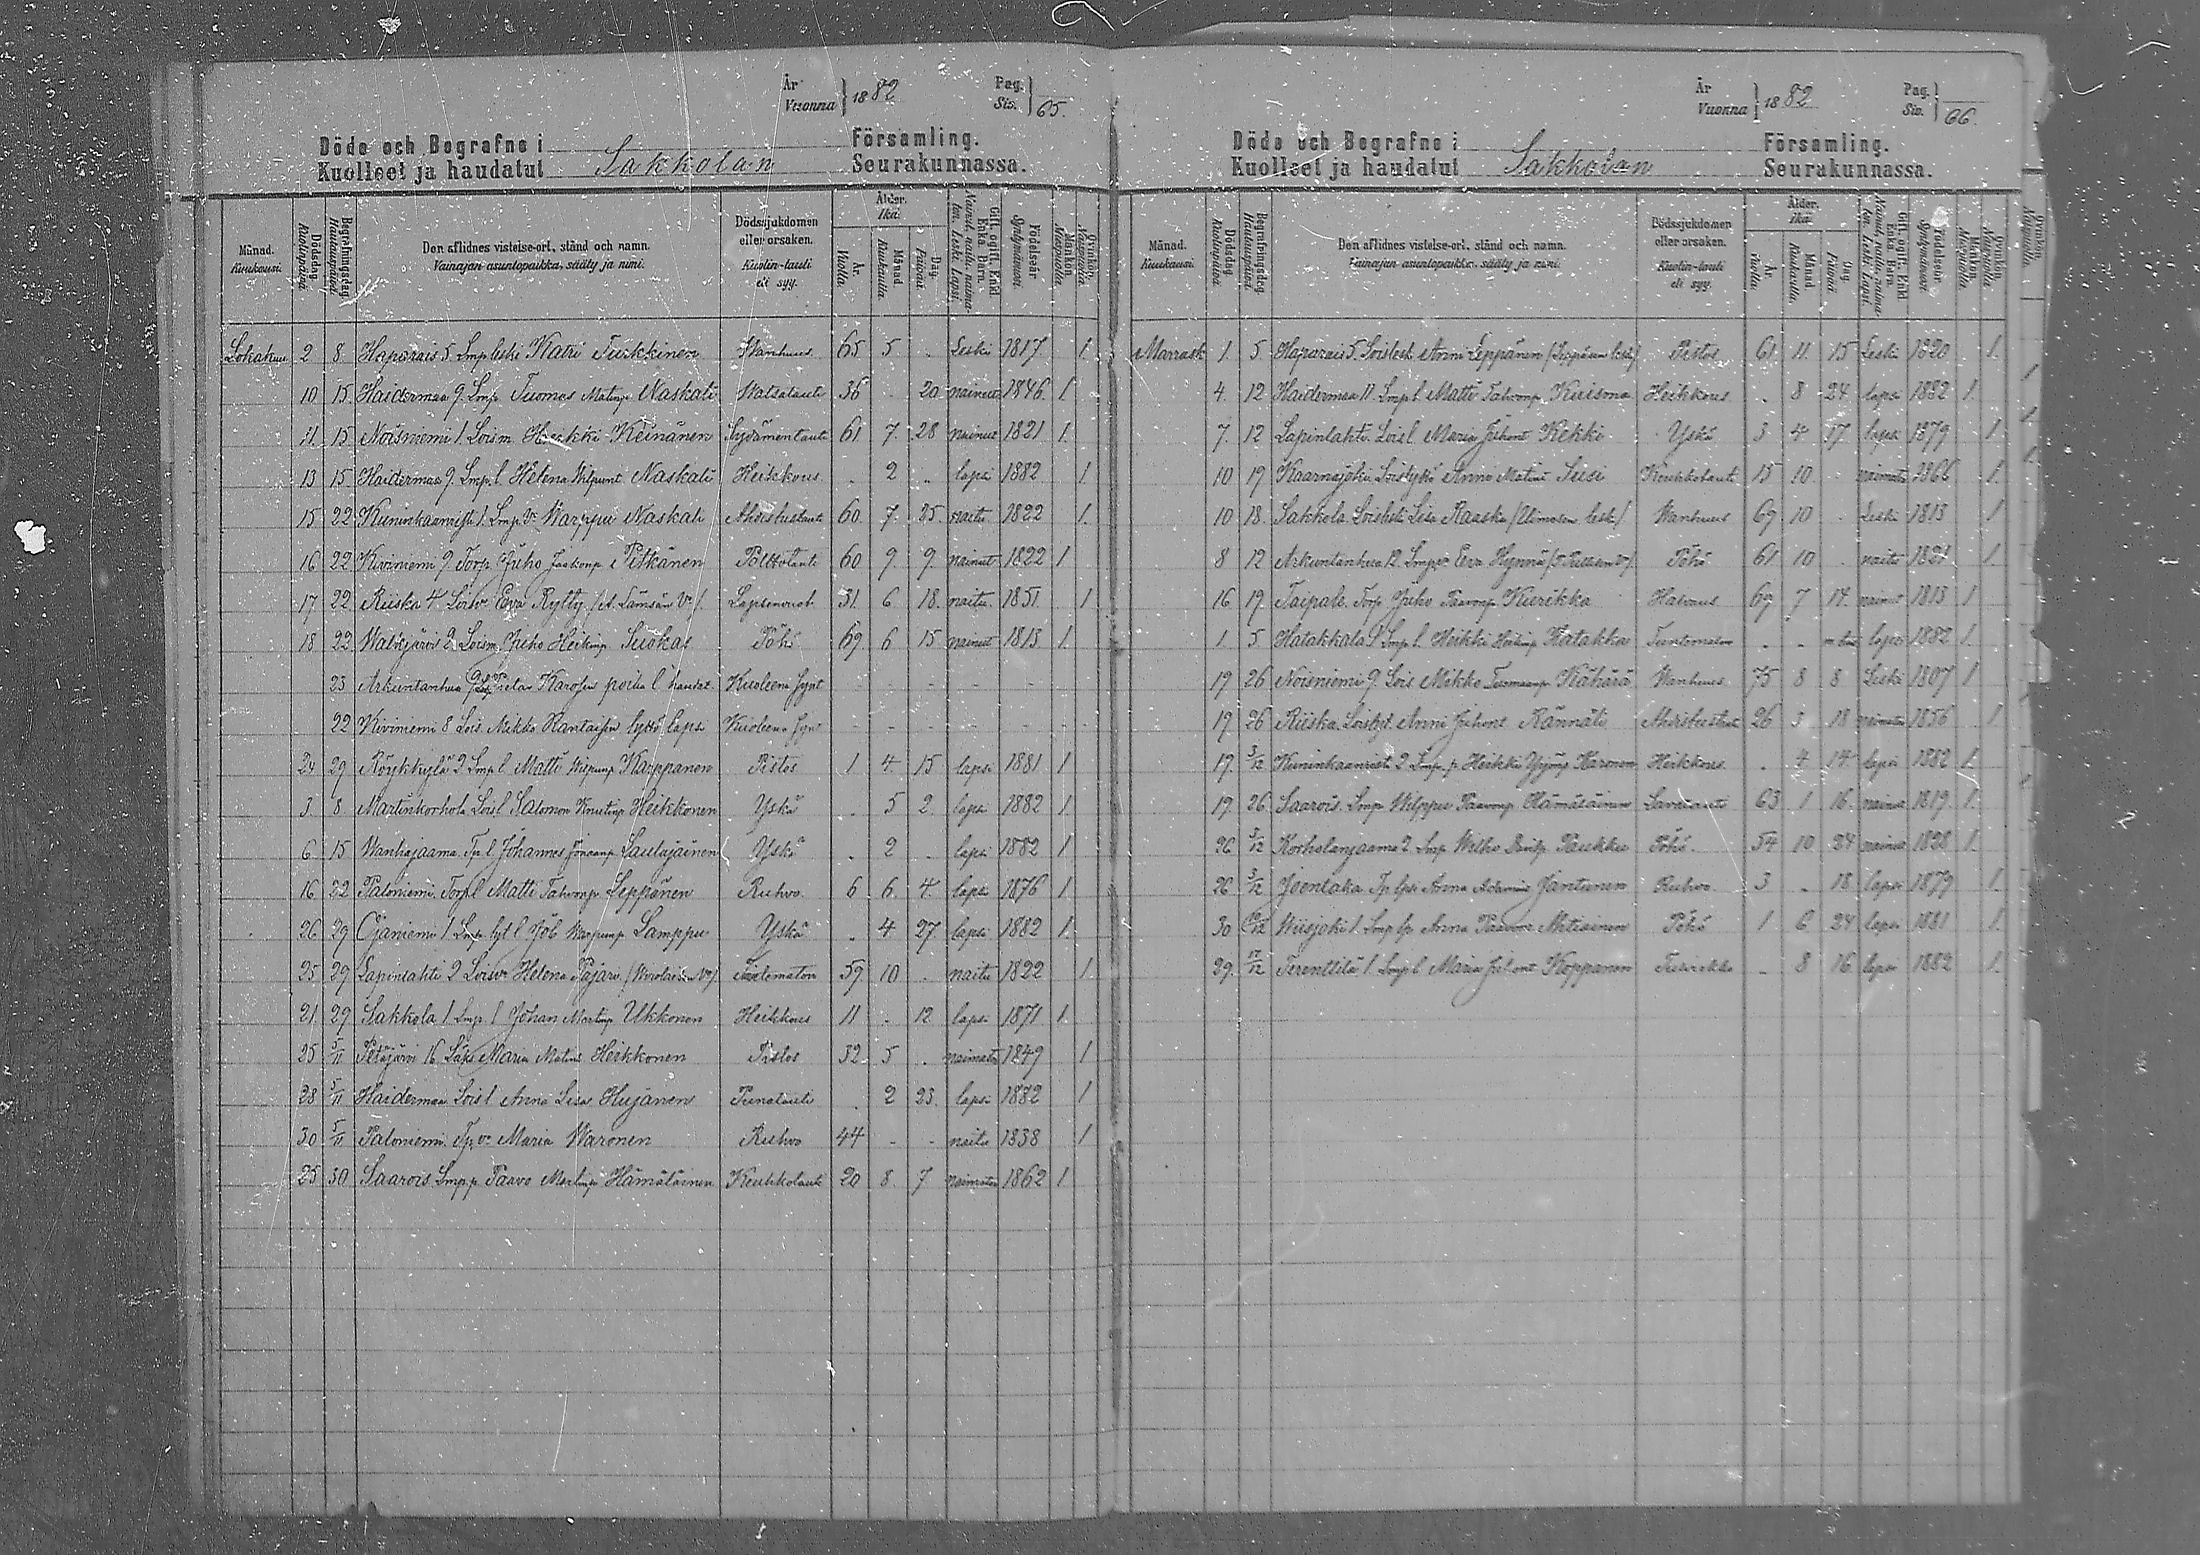 År
Vuonna } 1882
Pag.
Siv. } 65.
Döde och Begrafne i Församling.
Kuolleet ja haudatut Sakkolan Seurakunnassa.
Månad. Kuukausi. Dödsdag. Kuolinpäivä. Begrafningsdag. Hautauspäivä. Den aflidnes vistelse-ort, stånd och namn. Vainajan asuntopaikka, sääty ja nimi. Dödssjukdomen eller orsaken. Kuolin-tauti eli syy. Ålder. Ikä. År. Vuotta. Månad. Kuukautta. Dag. Päivää. Gift, ogift, Enkl. Enka, Barn. Födelseår. Syntymävuosi. Mankön. Miespuolta. Qvinkön. Naispuolta.
Lokakuu 2 8 Haparais 5. Lmp leski Katri Turkkinen Wanhuus 65 5 . Leski 1817 1.
10 15 Haiderma 9. Lmp. Tuomas Matinp Naskali Watsatauti 36 . 20 nainut 1846 1.
11. 15 Noisniemi 1. Loism. Heikki Keinänen Sydämentauti 61 7. 28 nainut 1821 1.
13 15 Haidermaa 9. Lmp. l. Helena Wilpunt Naskali Heikkous . 2 . lapsi 1882 1
15 22 1. Lmp. vo Warppu Naskali Ahdistustauti 60. 7. 25 naitu 1822 1.
16 22 Kiviniemi 9. Torp. Juho Jaakonp Pitkänen Polttotauti 60 9. 9. nainut 1822 1.
17 22 Riiska 4. Loisvo Eva Rytty /A. Lämsän vo/. 31. 6 18. naitu. 1851. 1
18 22 Walkjärvi 2. Loism. Juho Heikinp Suokas Pöhö 69 6 15 nainut 1813 1.
23 Arkuntanhua Karosen poika l. haudat. Kuoleena synt
22 Kiviniemi 8 Lois. Mikko Hantaisen lapsi Kuoleena synt
24 29 Röykkylä 2 Lmp l Matti Kaippanen Pistos 1 4. 15 lapsi 1881 1
3. 8 Martinkorhola Lois l Salomon Heikkonen Yskä . 5 2. lapsi 1882 1.
6 15 Wanhajaama. Tp l. Johannes Laulajainen Yskä . 2 . lapsi 1882 1
16 22 Paloniemi. Torp l Matti Leppänen Ruhvo. 6 6. 4. lapsi 1876 1.
26 29 Ojaniemi 1 Job Lamppu Yskä . 4 27 lapsi 1882 1.
25 29 Lapinlahti 2 Loisvo Helena Pajari Tuntematon 59. 10 . naitu 1822 1.
21 29 Sakkola 1 Lmp. l Johan Martinp Ukkonen Heikkous 11 . 12 lapsi 1871 1.
25 5/11 Petäjärvi 16. Maria Matint Heikkonen Pistos 32. 5 . naimatn 1849 1
28 5/11 Haiderma Lois l Anna Lisa Hujanen Punatauti . 2 23. lapsi 1882 1
30 5/11 Paloniemi. Tp. vo Maria Waronen Ruhvo 44 - - naitu 1838 1
25 30 Saarois Lmp p Paavo Martinp Hämäläinen Keuhkotauti 20 8. 7 naimaton 1862 1.
År
Vuonna } 1882
Pag.
Siv. } 66.
Döde och Begrafne i Församling.
Kuolleet ja haudatut Sakkolan Seurakunnassa.
Månad. Kuukausi. Dödsdag. Kuolinpäivä. Begrafningsdag. Hautauspäivä. Den aflidnes vistelse-ort, stånd och namn. Vainajan asuntopaikka, sääty ja nimi. Dödssjukdomen eller orsaken. Kuolin-tauti eli syy. Ålder. Ikä. År. Vuotta. Månad. Kuukautta. Dag. Päivää. Gift, ogift, Enkl. Enka, Barn. Födelseår. Syntymävuosi. Mankön. Miespuolta. Qvinkön. Naispuolta.
Marrask 1. 5 Haparais 5. Loislesk Anni Leppänen Pistos 61 11. 15 Leski 1820 1.
4. 12 Haidermaa 11. Lmp l. Matti Kuisma Heikkous . 8 24. lapsi 1882 1.
7. 12 Lapinlahti. Lois l. Maria Juhont Kekki Yskä 3 4 17 lapsi 1879 1.
10 19 Kaarnajoki Anni Matint Susi Keuhkotauti 15 10. . naimatn 1866 1.
10 18. Sakkola Loislesk Lisa Raaska Wanhuus 69 10 . Leski 1813 1
8 12 Arkuntanhua 12. Lmp vo Eva Hynnä Pöhö 61 10 . naitu 1821 1.
16 19. Taipale. Torp. Juho Paavonp Kurikka Halvaus 69 7 14. nainut 1813 1
1. 5 Hatakkala 1 Lmp l. Heikki Heikinp Hatakka Tuntematon . . lapsi 1882 1.
19 26 Noisniemi 9 Lois Mikko Tuomaanp Kähärä Wanhuus 75 8 8 Leski 1807 1
19 26 Riiska. Anni Juhont Rännäli Ahdistustaut 26 3 18 naimaton 1856 1
17. 3/12 2 Lmp. p Heikki Yrjönp Karonen Heikkous . 4 14 lapsi 1882 1.
19. 26 Saarois. Lmp Wilppu Paavonp Hämäläinen 63 1 16. nainut 1819. 1.
26 3/12 Korholanjaama 2 Paukku Pöhö. 54 10 24 nainut 1828 1.
26 3/12 Joentaka Tp lps Anna Jantunen Ruhvo. 3 . 18. lapsi 1879 1.
30 Wiisjoki 1. Lmp lp Anna Paavont Pöhö 1 6 24 lapsi 1881 1.
29. 17/12 Terenttilä 1. Lmp l Maria Juhont Koppanen Tuhkuri . 8 16 lapsi 1882 1.